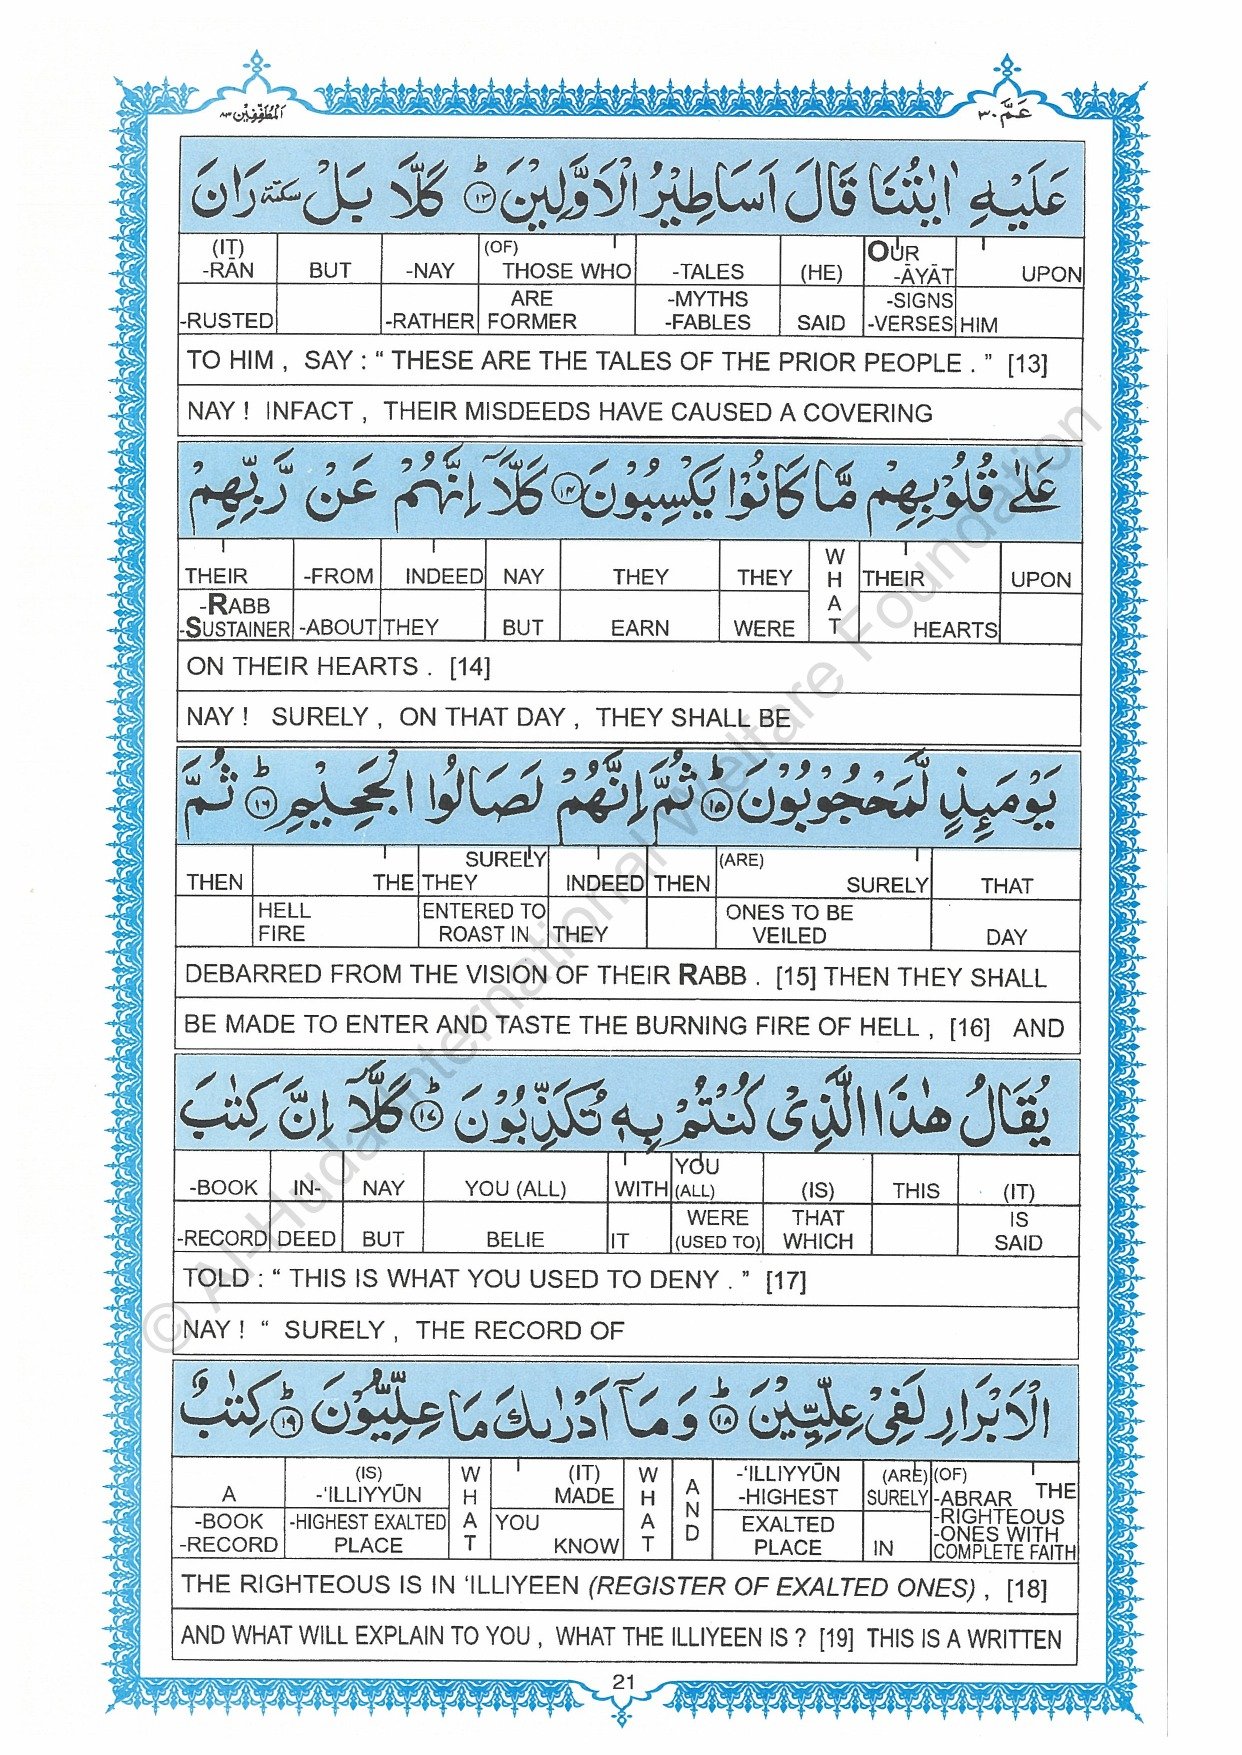 عَمَّ ٣٠ اَلْمُطَفِّفِيْن ٨٣
عَلَيْهِ اٰيٰتُنَا قَالَ اَسَاطِيْرُ الْاَوَّلِيْنَ ؕ ١٣ كَلَّا بَلْ سكتة رَانَ
(IT) (OF) OUR
-RĀN BUT -NAY THOSE WHO -TALES (HE) -ĀYĀT UPON
ARE -MYTHS -SIGNS
-RUSTED -RATHER FORMER -FABLES SAID -VERSES HIM
TO HIM , SAY : “ THESE ARE THE TALES OF THE PRIOR PEOPLE . ” [13]
NAY ! INFACT , THEIR MISDEEDS HAVE CAUSED A COVERING
عَلٰى قُلُوْبِهِمْ مَّا كَانُوْا يَكْسِبُوْنَ ١٤ كَلَّاۤ اِنَّهُمْ عَنْ رَّبِّهِمْ
THEIR -FROM INDEED NAY THEY THEY WHAT THEIR UPON
-RABB
-SUSTAINER -ABOUT THEY BUT EARN WERE HEARTS
ON THEIR HEARTS . [14]
NAY ! SURELY , ON THAT DAY , THEY SHALL BE
يَوْمَئِذٍ لَّمَحْجُوْبُوْنَ ؕ ١٥ ثُمَّ اِنَّهُمْ لَصَالُوا الْجَحِيْمِ ؕ ١٦ ثُمَّ
SURELY (ARE)
THEN THE THEY INDEED THEN SURELY THAT
HELL ENTERED TO ONES TO BE
FIRE ROAST IN THEY VEILED DAY
DEBARRED FROM THE VISION OF THEIR RABB . [15] THEN THEY SHALL
BE MADE TO ENTER AND TASTE THE BURNING FIRE OF HELL , [16] AND
يُقَالُ هٰذَا الَّذِىْ كُنْتُمْ بِهٖ تُكَذِّبُوْنَ ؕ ١٧ كَلَّاۤ اِنَّ كِتٰبَ
YOU
-BOOK IN- NAY YOU (ALL) WITH (ALL) (IS) THIS (IT)
WERE THAT IS
-RECORD DEED BUT BELIE IT (USED TO) WHICH SAID
TOLD : “ THIS IS WHAT YOU USED TO DENY . ” [17]
NAY ! “ SURELY , THE RECORD OF
الْاَبْرَارِ لَفِىْ عِلِّيِّيْنَ ؕ ١٨ وَمَاۤ اَدْرٰىكَ مَا عِلِّيُّوْنَ ؕ ١٩ كِتٰبٌ
(IS) WHAT (IT) WHAT AND -‘ILLIYYŪN (ARE) (OF) THE
A -‘ILLIYYŪN MADE -HIGHEST SURELY -ABRAR
-BOOK -HIGHEST EXALTED YOU EXALTED -RIGHTEOUS
-RECORD PLACE KNOW PLACE IN -ONES WITH
COMPLETE FAITH
THE RIGHTEOUS IS IN ‘ILLIYEEN (REGISTER OF EXALTED ONES) , [18]
AND WHAT WILL EXPLAIN TO YOU , WHAT THE ILLIYEEN IS ? [19] THIS IS A WRITTEN
21
© Al-Huda International Welfare Foundation